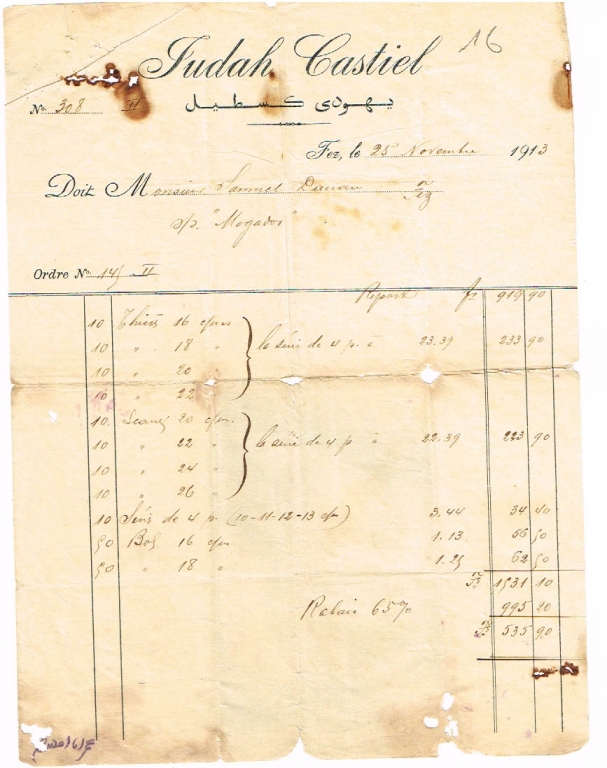 16
Judah Castiel
يهودى كسطيل
No. 308 II
Fez, le 25 Novembre 1913
Doit Monsieur Samuel Fez
s/p. "Mogador"
Ordre No. 145 II
Report fs 919 90
10 16 c/ms
10 " 18 " la série de 4 p. à 23.39 233 90
10 " 20 "
10 " 22 "
10 20 c/ms
10 " 22 " la série de 4 p. à 22.39 223 90
10 " 24 "
10 " 26 "
10 Séries de 4 p. (10-11-12-13 c/m) 3.44 34 40
50 Bols 16 c/ms 1.13 56 50
50 " 18 " 1.25 62 50
1531 10
Rabais 65% 995 20
535 90